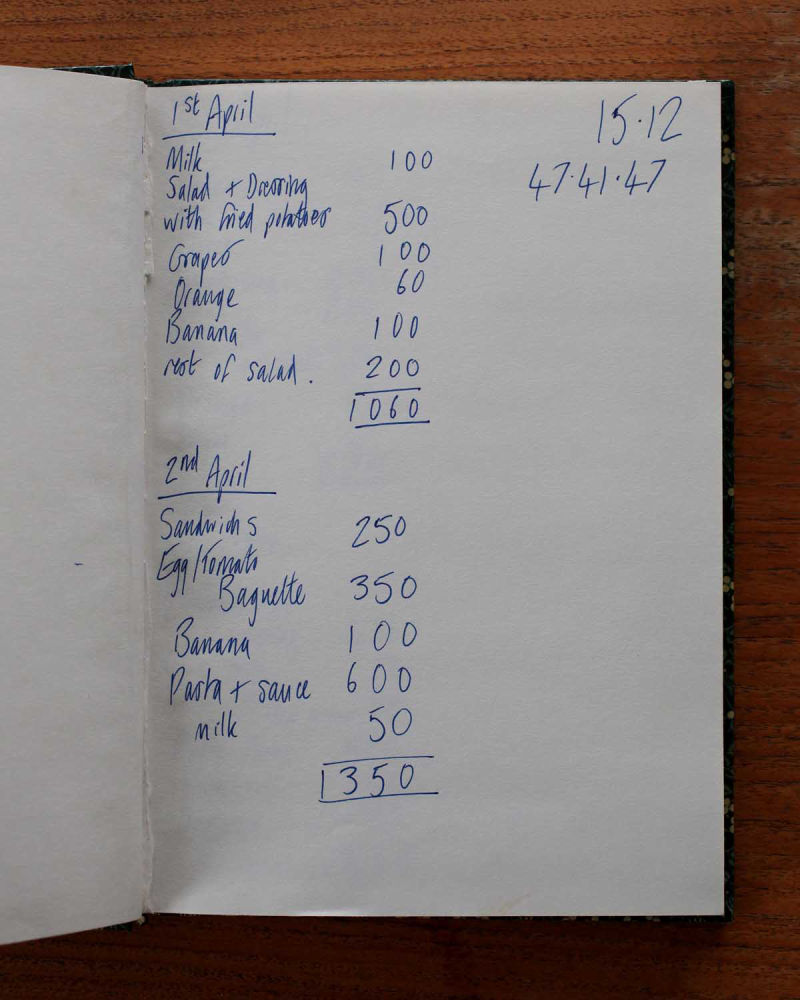 1st April
15.12
47.41.47
Milk 100
Salad + Dressing
with fried potatoes 500
Grapes 100
Orange 60
Banana 100
rest of salad. 200
1060
2nd April
Sandwichs 250
Egg/Tomato
Baguette 350
Banana 100
Pasta + sauce 600
milk 50
1350